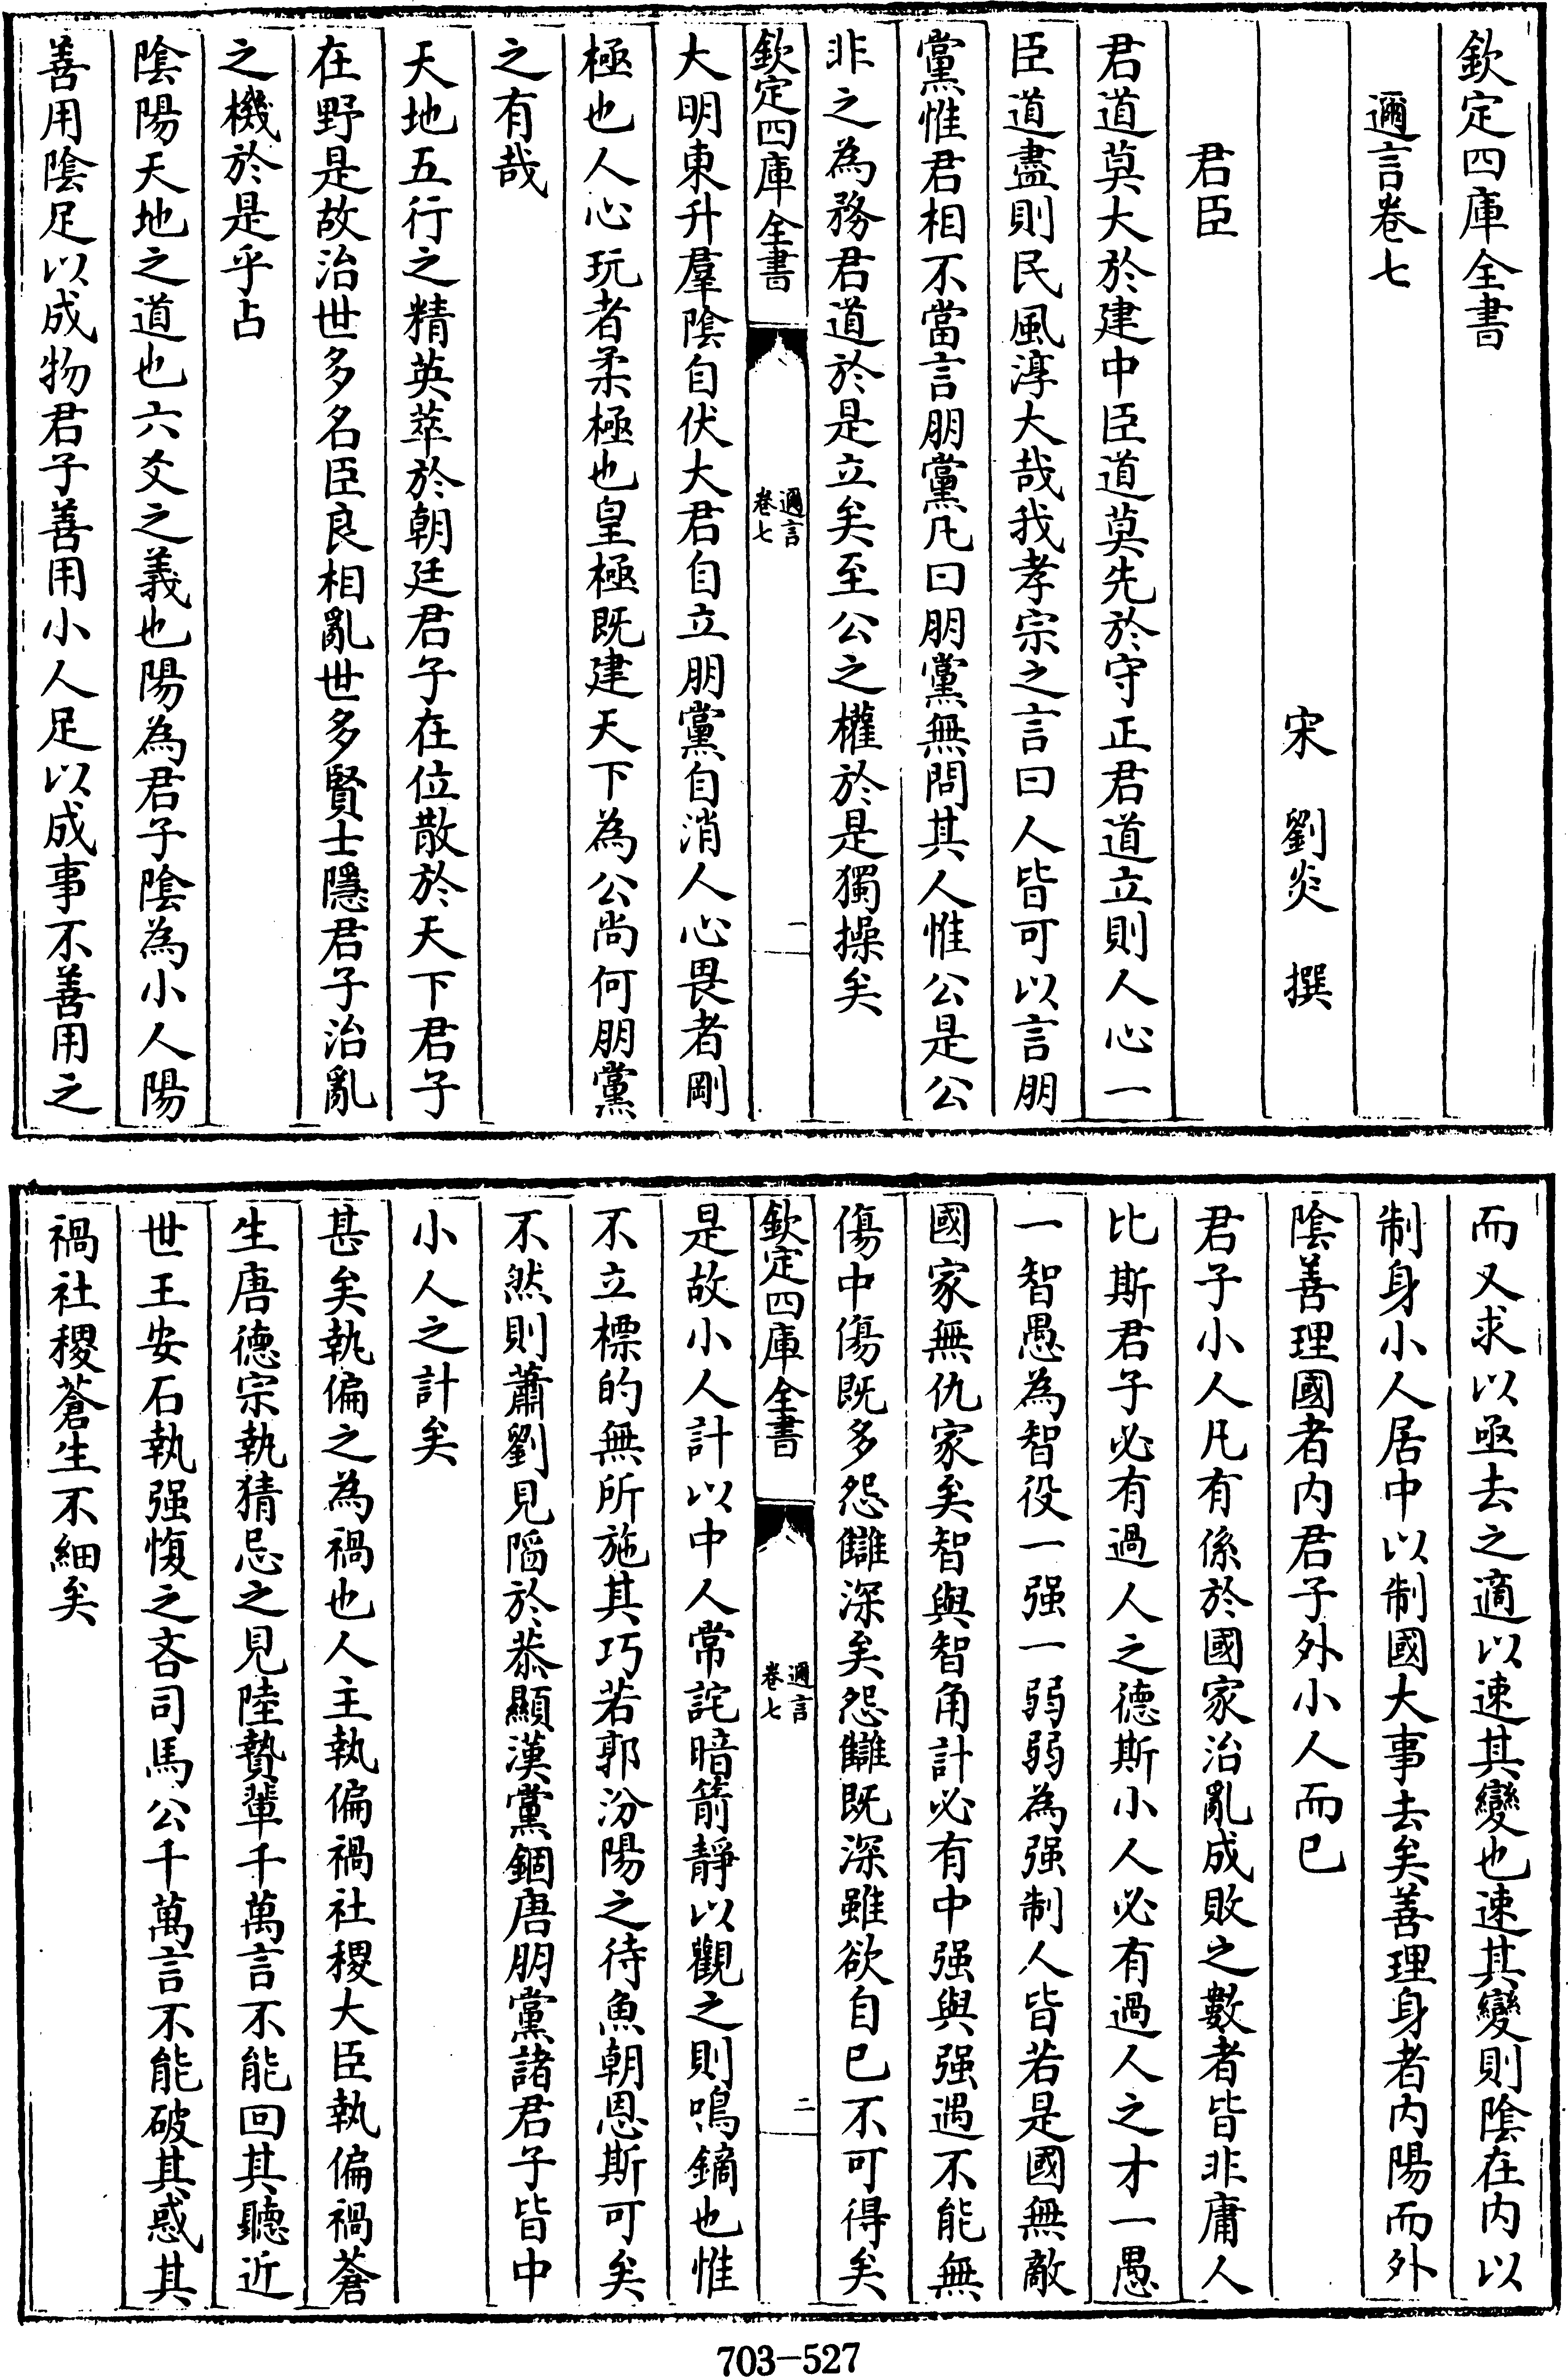 欽定四庫全書
邇言卷七
宋 劉炎 撰
君臣
君道莫大於建中臣道莫先於守正君道立則人心一
臣道盡則民風淳大哉我孝宗之言曰人皆可以言朋
黨惟君相不當言朋黨凡曰朋黨無問其人惟公是公
非之為務君道於是立矣至公之權於是獨操矣
欽定四庫全書
邇言
卷七
一
大明東升羣陰自伏大君自立朋黨自消人心畏者剛
極也人心玩者柔極也皇極既建天下為公尚何朋黨
之有哉
天地五行之精英萃於朝廷君子在位散於天下君子
在野是故治世多名臣良相亂世多賢士隱君子治亂
之機於是乎占
陰陽天地之道也六爻之義也陽為君子陰為小人陽
善用陰足以成物君子善用小人足以成事不善用之
而又求以亟去之適以速其變也速其變則陰在内以
制身小人居中以制國大事去矣善理身者内陽而外
陰善理國者内君子外小人而已
君子小人凡有係於國家治亂成敗之數者皆非庸人
比斯君子必有過人之德斯小人必有過人之才一愚
一智愚為智役一强一弱弱為强制人皆若是國無敵
國家無仇家矣智與智角計必有中强與强遇不能無
傷中傷既多怨讎深矣怨讎既深雖欲自已不可得矣
欽定四庫全書
邇言
卷七
二
是故小人計以中人常詫暗箭靜以觀之則鳴鏑也惟
不立標的無所施其巧若郭汾陽之待魚朝恩斯可矣
不然則蕭劉見陷於恭顯漢黨錮唐朋黨諸君子皆中
小人之計矣
甚矣執偏之為禍也人主執偏禍社稷大臣執偏禍蒼
生唐德宗執猜忌之見陸贄輩千萬言不能回其聽近
世王安石執强愎之吝司馬公千萬言不能破其惑其
禍社稷蒼生不細矣
703-527